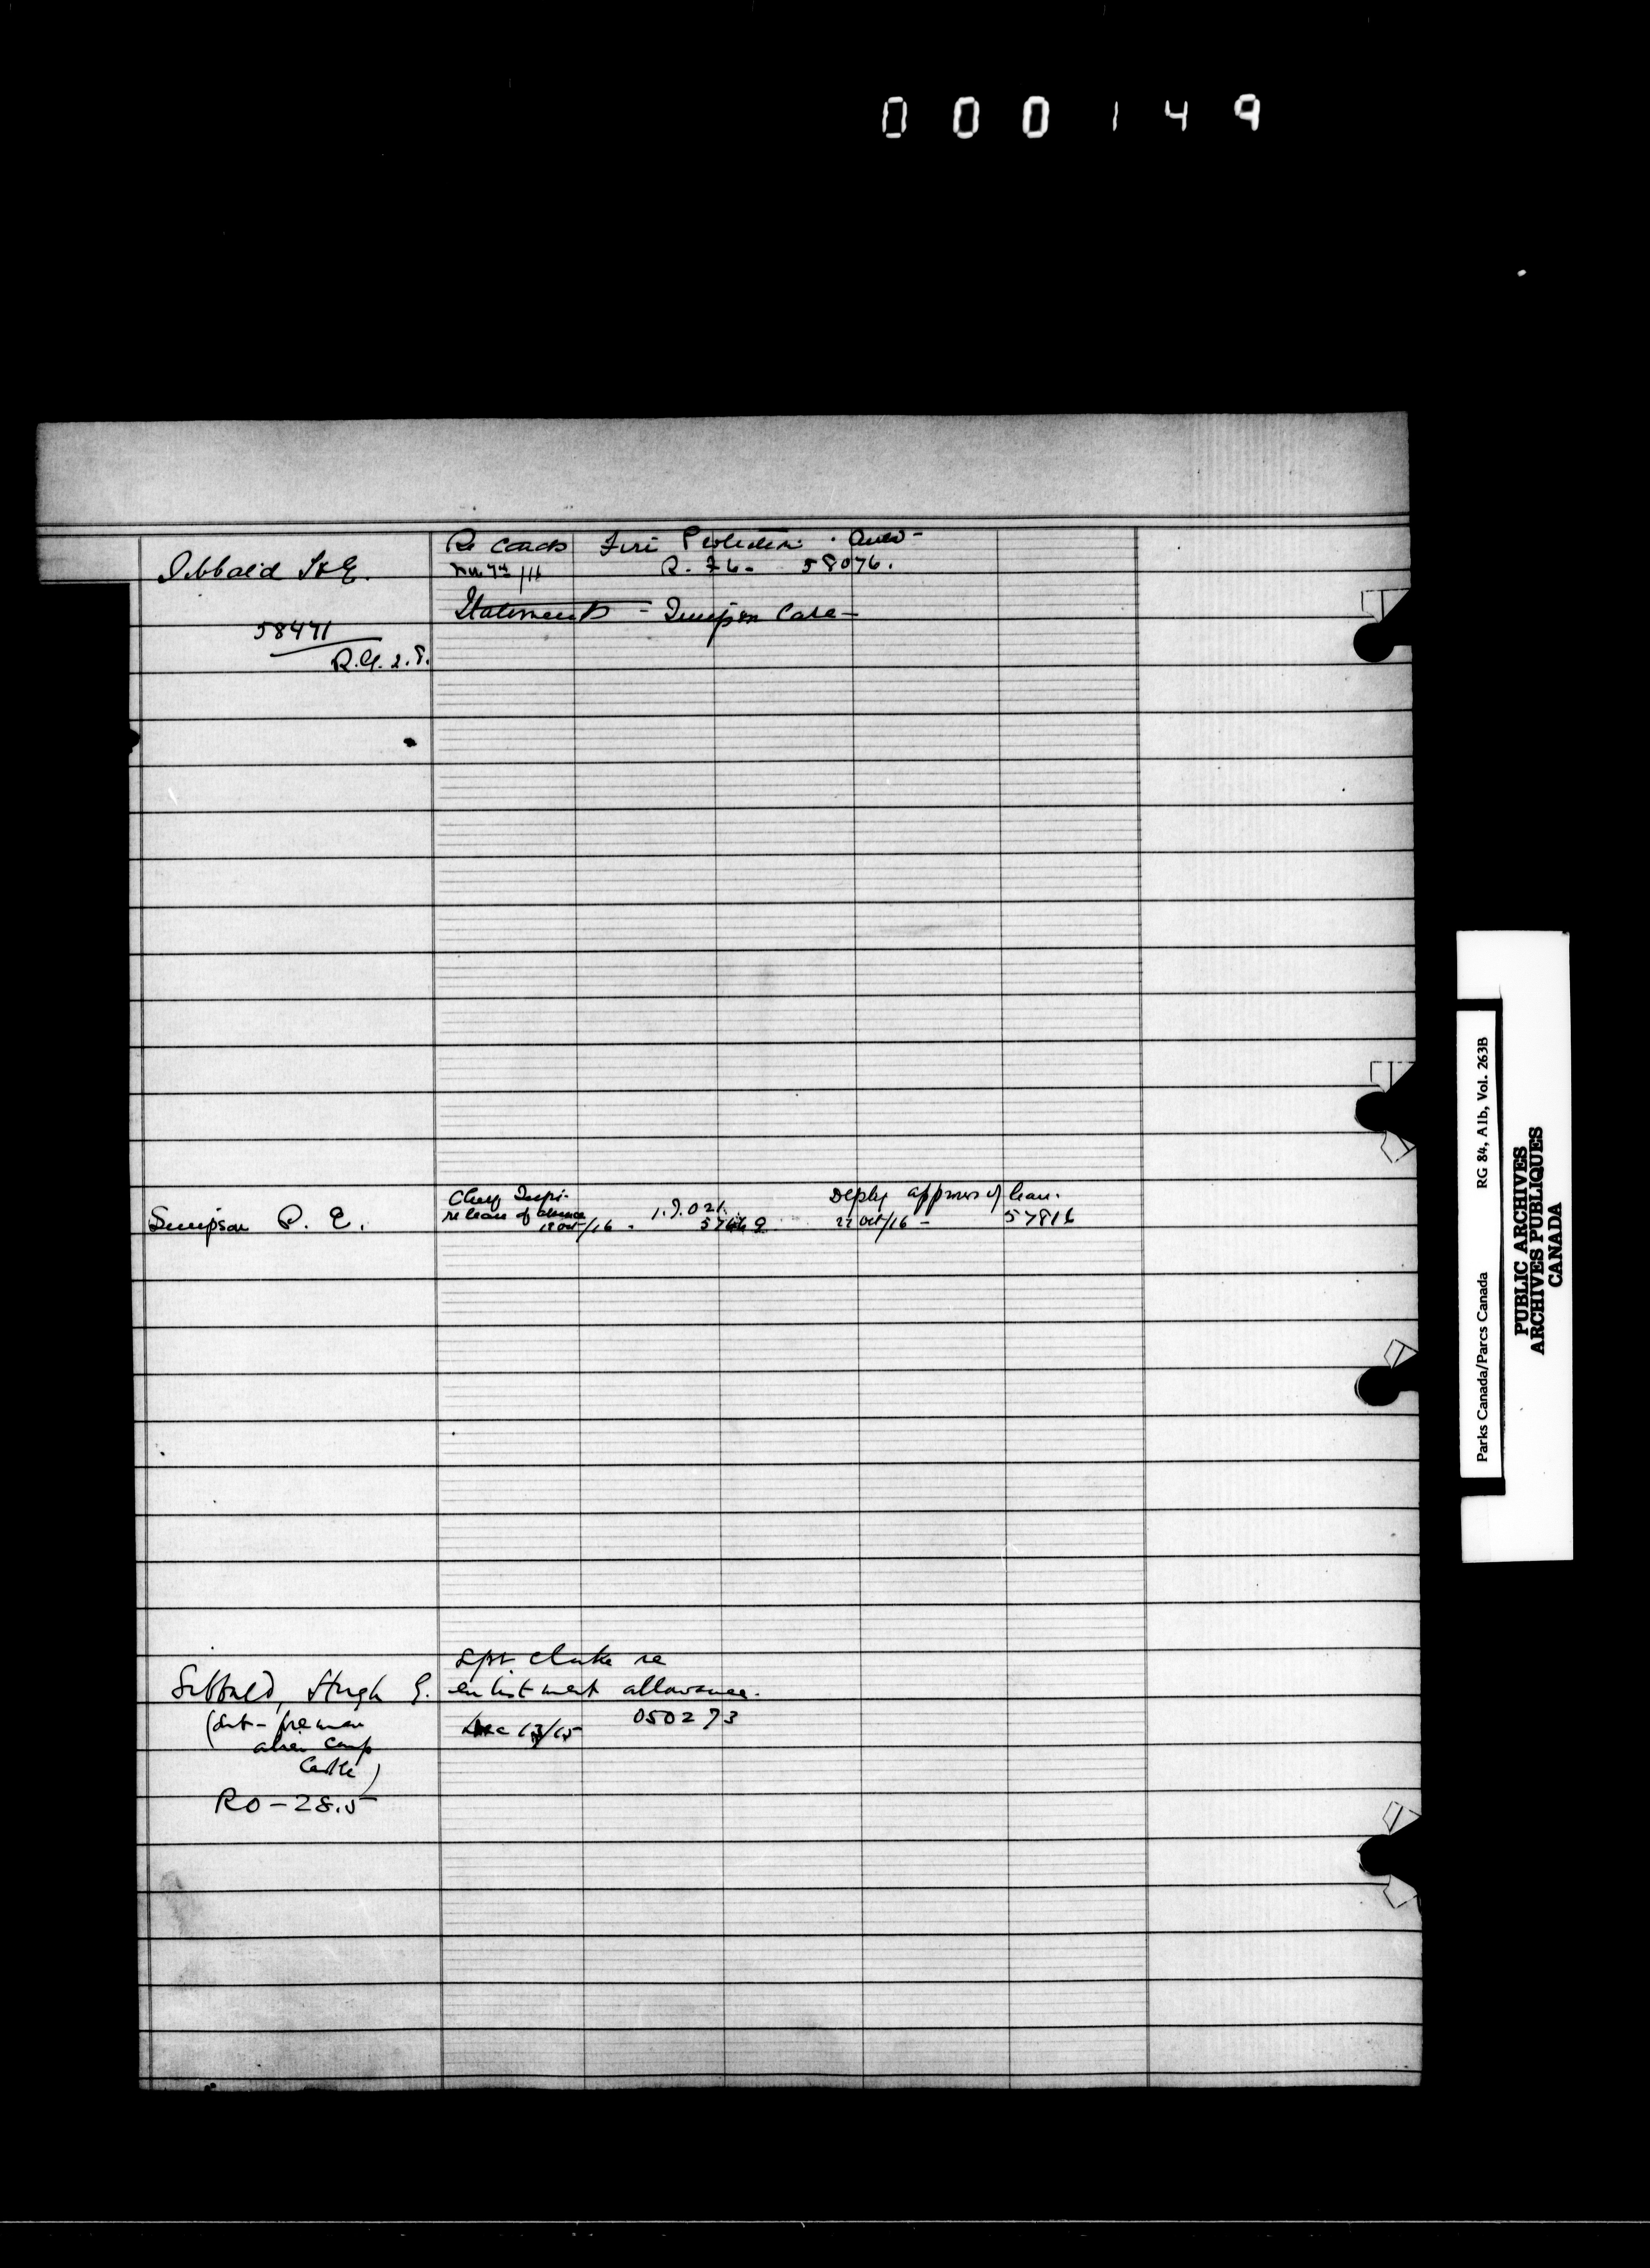 000149
Re Coach Fire Protection
Sibbald H. E.
R. 76. 58076.
Statements - Simpson Case -
58471
R.G. 2.8.
Chief Supr.
re leave of absence
Deply approves of leave.
Simpson R. E.
18 Oct/16 -
1.J.021.
22 Oct/16 -
57816
Supt Clarke re
Sibbald, Hugh E.
enlistment allowance.
alien camp
Castle)
Dec 13/15
050273
RO-28.5
Parks Canada/Parcs Canada RG 84, A1b, Vol. 263B
PUBLIC ARCHIVES
ARCHIVES PUBLIQUES
CANADA